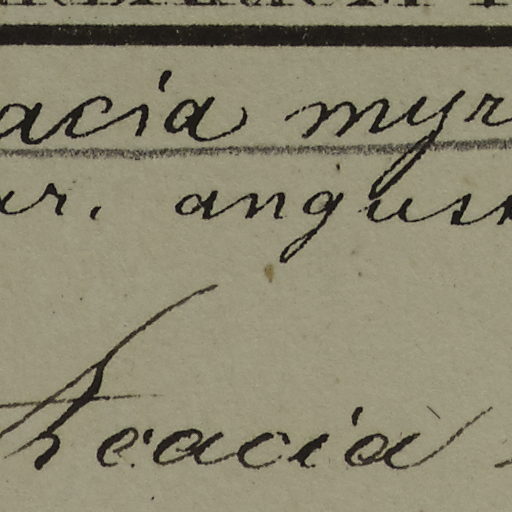 acia myr
ar. angus
Acacia